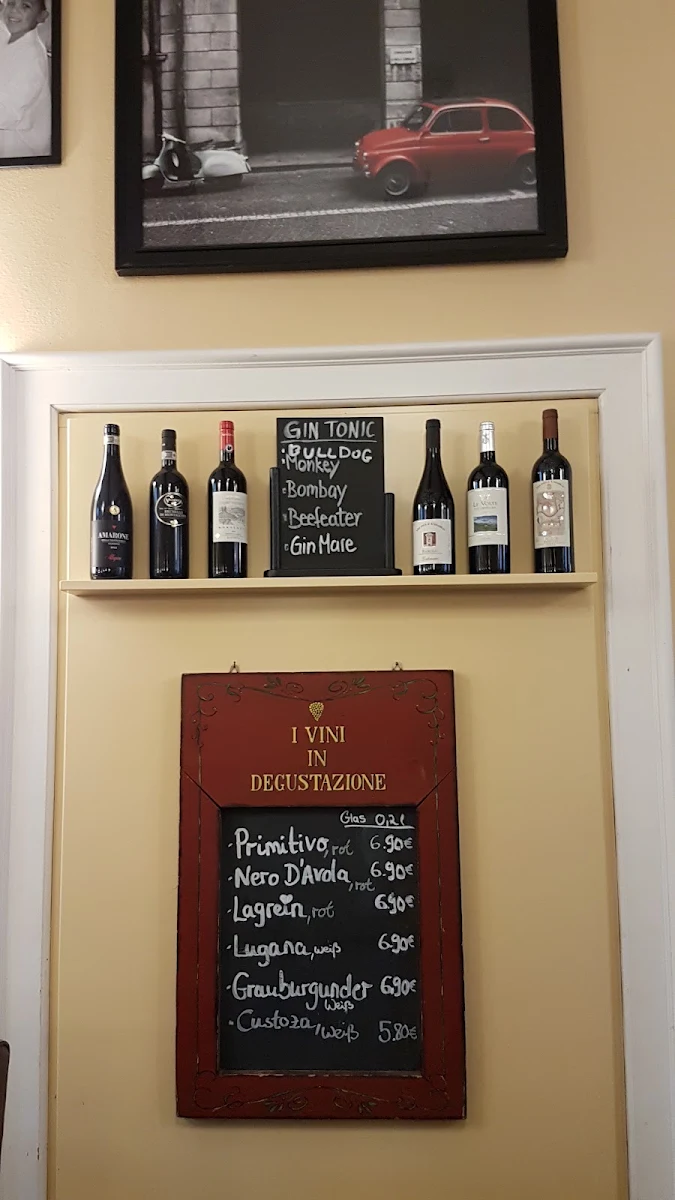 GIN TONIC
• BULLDOG
• Monkey
• Bombay
• Beefeater
• Gin Mare
AMARONE
I VINI
IN
DEGUSTAZIONE
Glas 0,2l
· Primitivo, rot 6.90€
· Nero D'Avola, rot 6.90€
· Lagrein, rot 6.90€
· Lugana, weiß 6.90€
· Grauburgunder Weiß 6.90€
· Custoza, weiß 5.80€